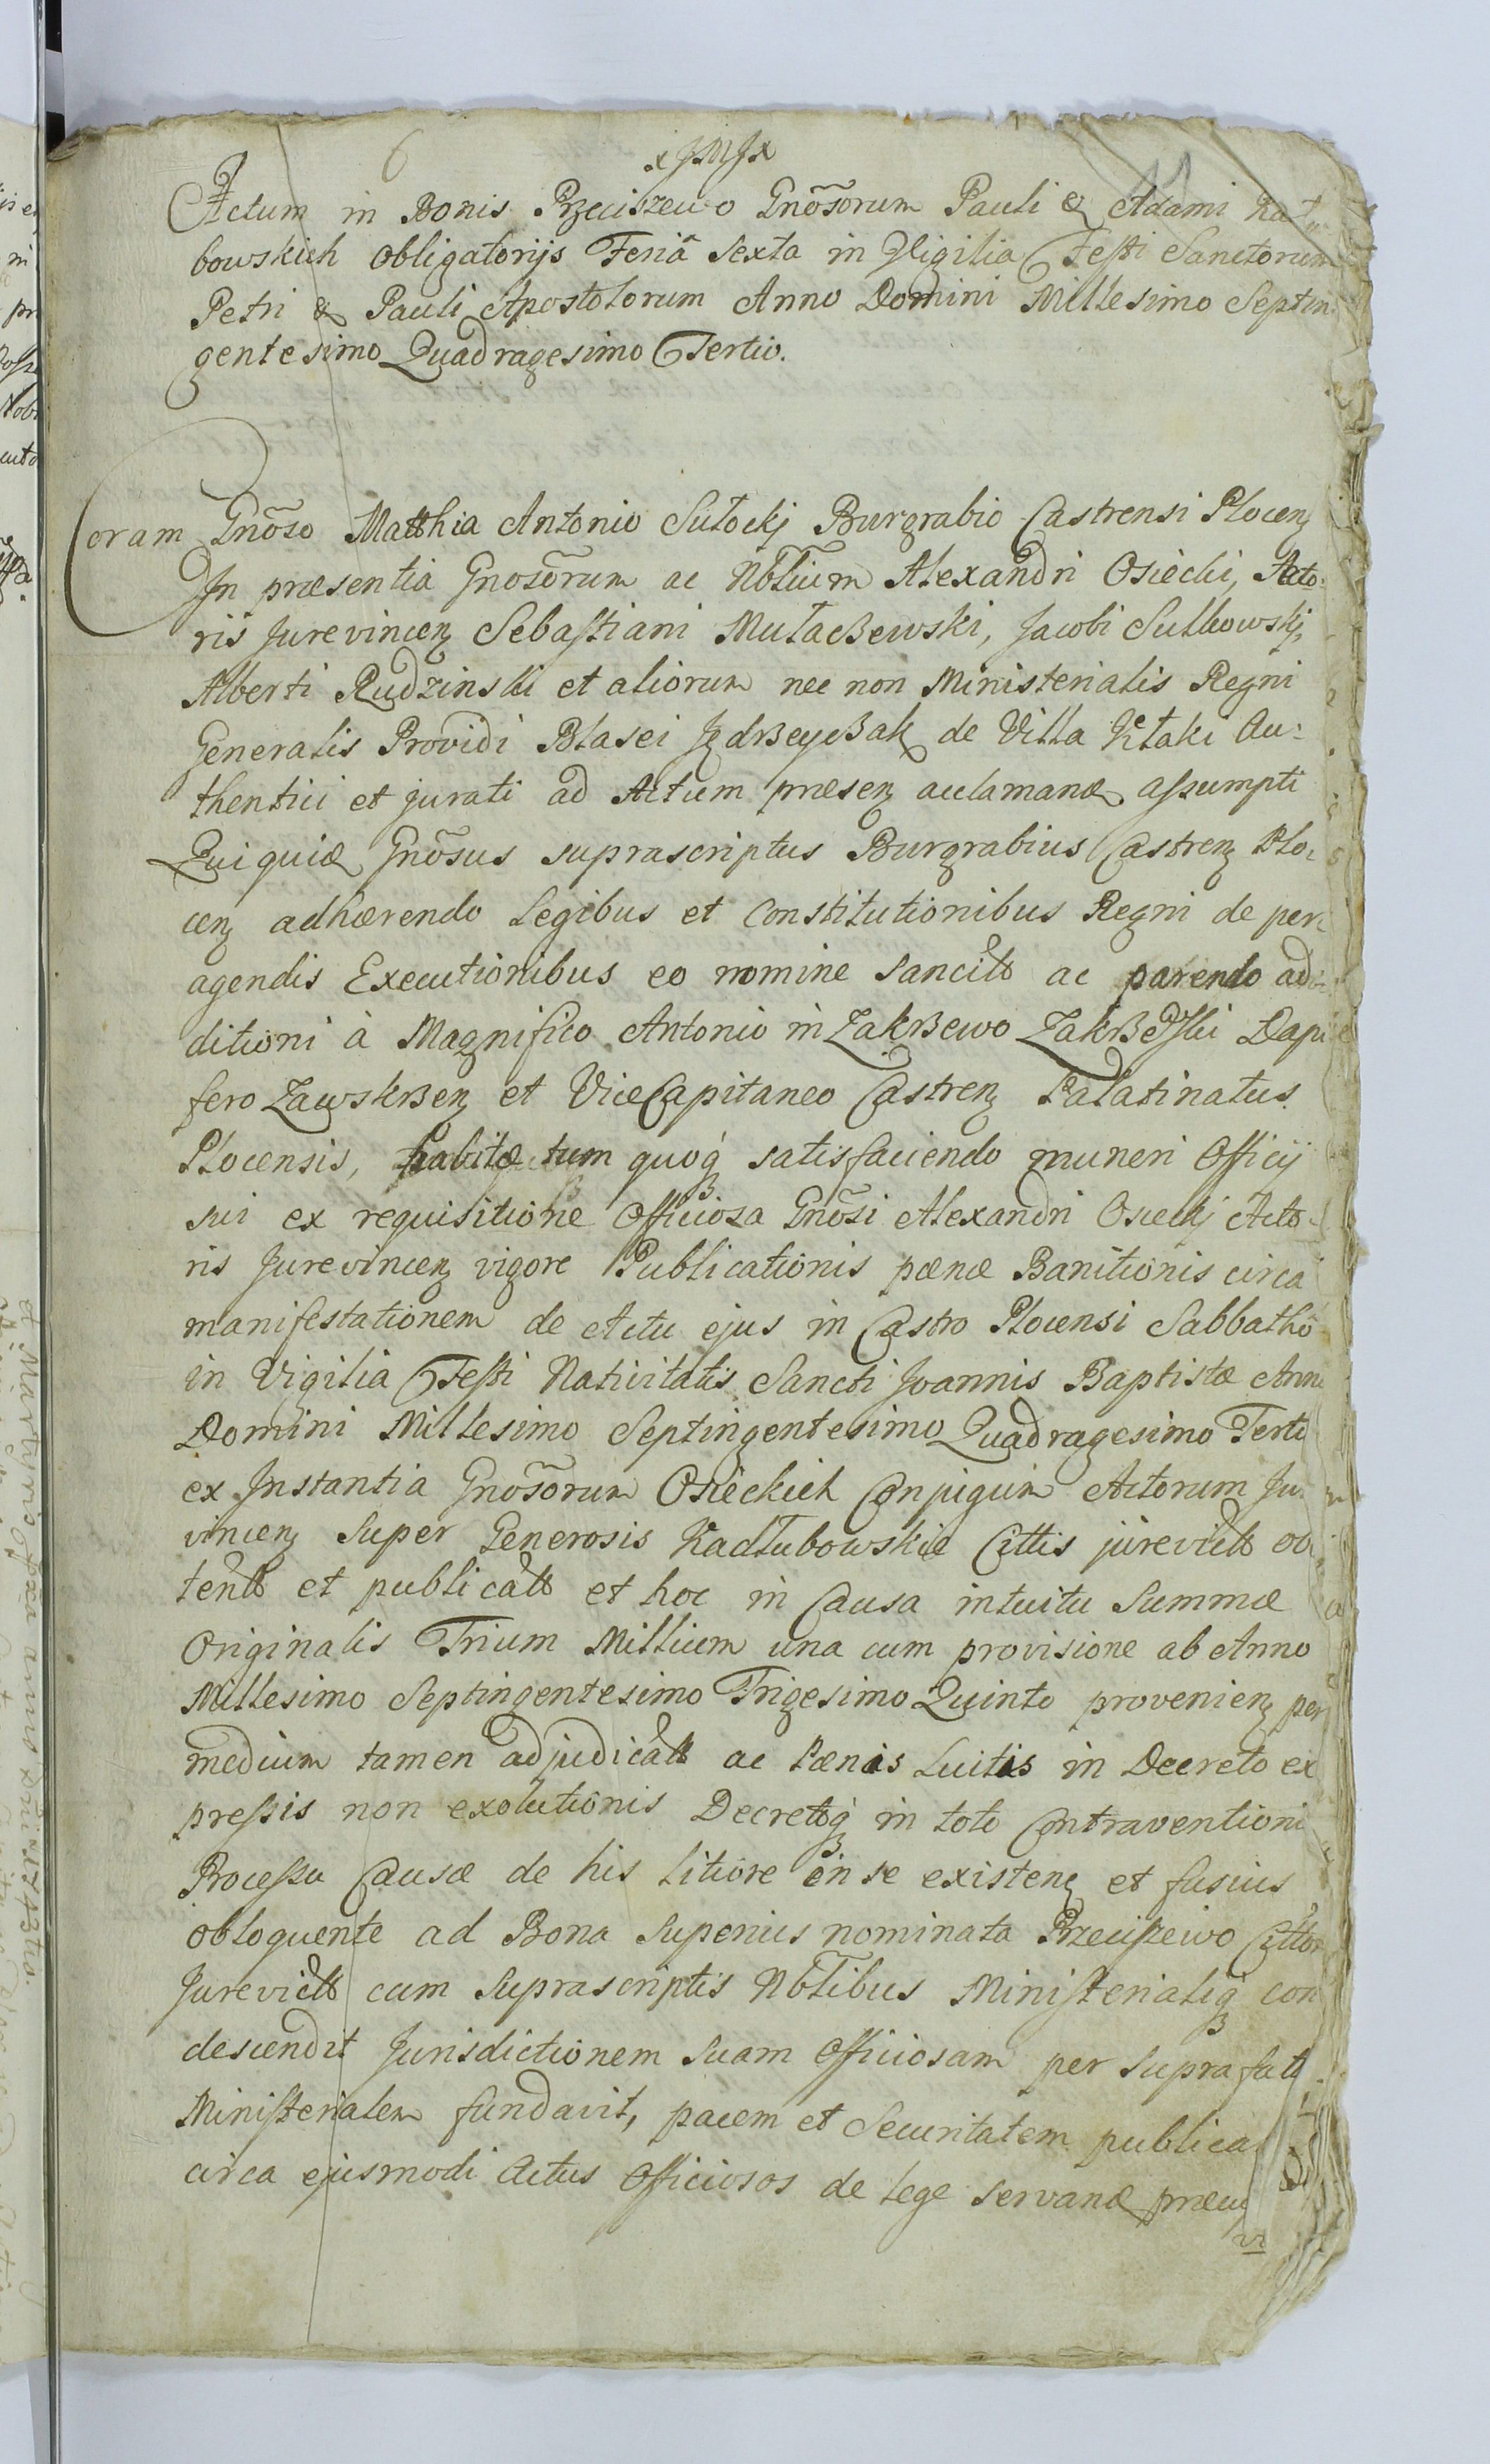 6
x JMJ x
Actum in Bonis Przeciszewo Gnõsorum Pauli & Adami Kat„
bowskich obligatorijs Feriâ Sexta in Vigilia Festi Sanctorum
Petri & Pauli Apostolorum Anno Domini Millesimo Septin:
gentesimo Quadragesimo Tertio.
Coram Gnõso Matthia Antonio Sutocki Burgrabio Castrensi Plocen
In præsentia Gnosõrum ac Nbtlium Alexandri Osiecki, Acto:
ris Jurevincen Sebastiani Mutaczewski, Jacobi Sulkowskj,
Alberti Rudzinski et aliorum nec non Ministerialis Regni
Generalis Providi Blasei Jędrzeyczak de Villa Kętaki Au:
thentici et jurati ad Actum præsen acclamand assumpti
Qui quid Gnõsus suprascriptus Burgrabius Castren Plo:
cen adhærendo Legibus et Constitutionibus Regni de per:
agendis Executionibus eo nomine Sancitt ac parendo ad:
ditioni à Magnifico Antonio in Zakrzewo Zakrzewski Dapi
fero Zawskrzen et ViceCapitaneo Castren Palatinatus
Plocensis, habitæ tum quoq satisfaciendo muneri Officij
sui ex requisitione Officiosa Gnõsi Alexandri Osieckj Acto:
ris Jurevincen vigore Publicationis pænæ Banitionis circa
manifestationem de Actu ejus in Castro Plocensi Sabbatho
in Vigilia Festi Nativitatis Sancti Joannis Baptistæ Ann
Domini Millesimo Septingentesimo Quadragesimo Terti
ex Instantia Gnosõrum Osieckich Conjugum Actorum Ju
vincen Super Generosis Kadtubowskie Cittis jurevictt ob
tentt et publicatt et hoc in Causa intuitu Summæ
Originalis Trium Millium una cum provisione ab Anno
Millesimo Septingentesimo Trigesimo Quinto provenien per
medium tamen adjudicatt ac Pænis Luitis in Decreto ex
pressis non exolutionis Decretoq in toto Contraventioni
Processu Causæ de his litiore in se existen et fusius
obloquente ad Bona Superius nominata Przeciszewo Cittor
Jurevictt cum Suprascriptis Nbtlibus Ministerialiq con
descendit Jurisdictionem Suam Officiosam per Suprafatt
Ministerialem fundavit, pacem et Securitatem publica
circa ejusmodi Actus Officiosos de lege servand præcu
vi